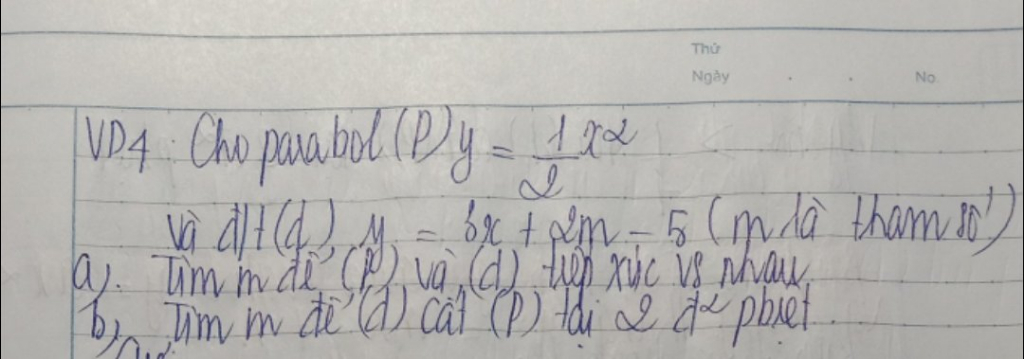 Thứ
Ngày . . No
VD4: Cho parabol (P) y = 1/2 x²
và đ/t (d) y = 3x + 2m - 5 (m là tham số)
a). Tìm m để (P) và (d) tiếp xúc vs nhau.
b). Tìm m để (d) cắt (P) tại 2 đ² pbiệt.